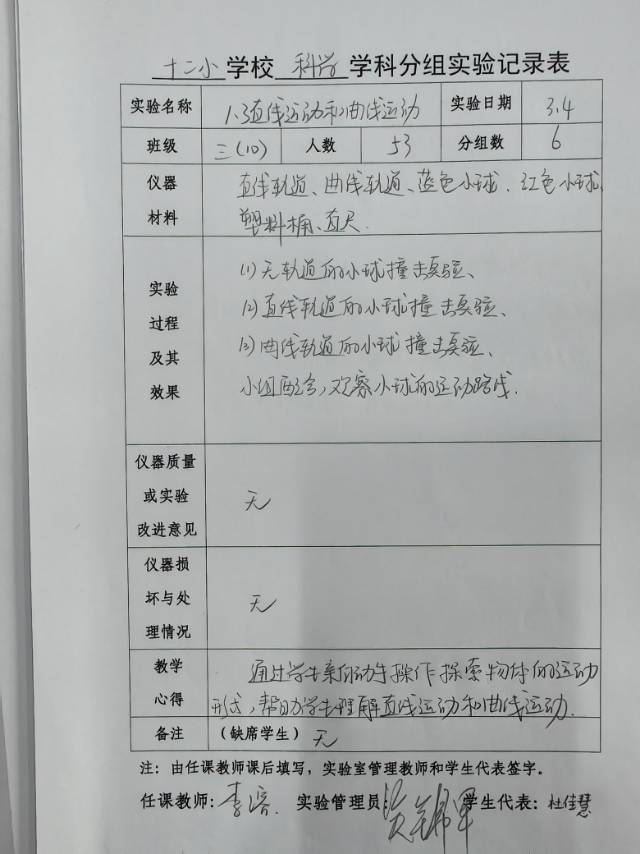 十二小学校 科学 学科分组实验记录表
实验名称 1.3直线运动和曲线运动 实验日期 3.4
班级 三(10) 人数 53 分组数 6
仪器材料 直线轨道、曲线轨道、蓝色小球、红色小球、
塑料桶、直尺.
实验过程及其效果
(1)无轨道的小球撞击实验、
(2)直线轨道的小球撞击实验、
(3)曲线轨道的小球撞击实验、
小组配合,观察小球的运动路线.
仪器质量或实验改进意见 无
仪器损坏与处理情况 无
教学心得 通过学生亲自动手操作探索物体的运动
形式,帮助学生理解直线运动和曲线运动.
备注 (缺席学生) 无
注:由任课教师课后填写,实验室管理教师和学生代表签字。
任课教师:李 实验管理员: 学生代表:杜佳慧